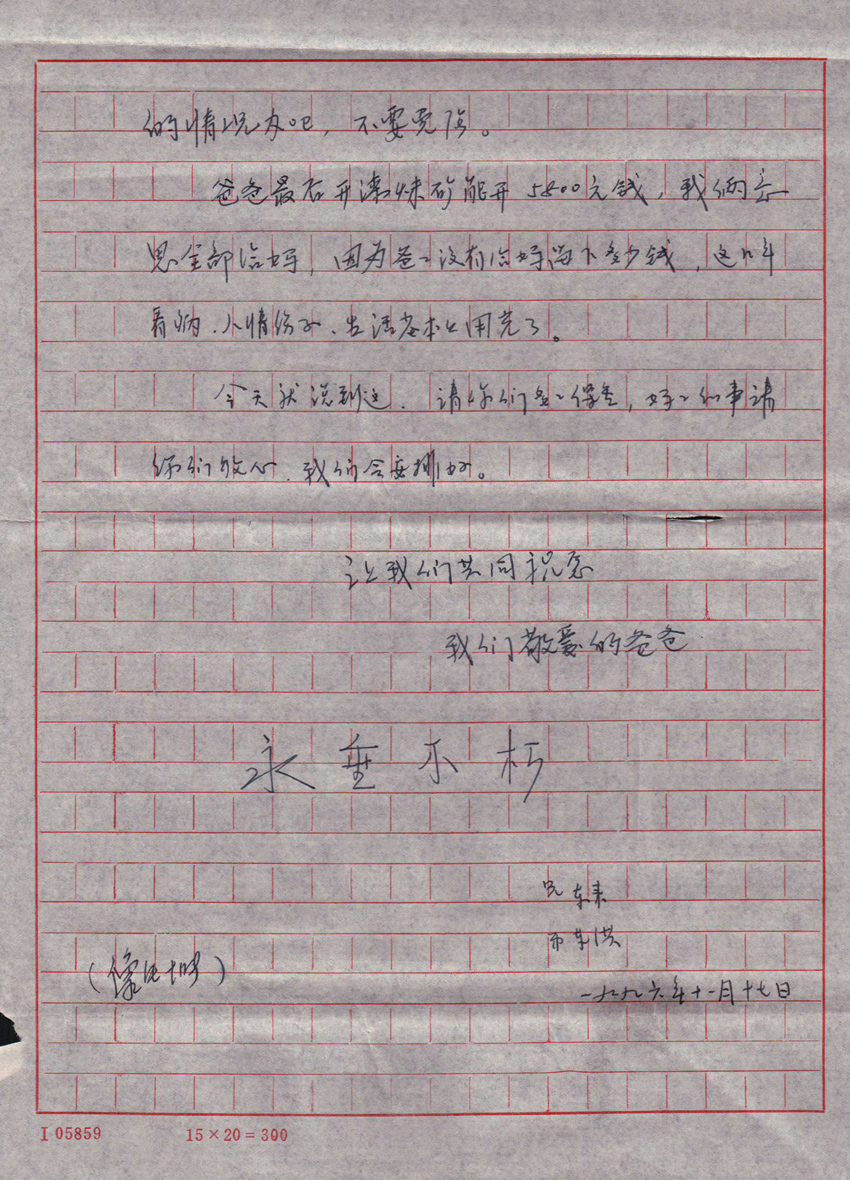 的情况办吧，不要勉强。
爸爸最后开滦煤矿能开5800元钱，我俩意
思全部给妈，因为爸〻没有给妈留下多少钱，这几年
看病、人情份子、生活基本上用完了。
今天就说到这．请你们多〻保重，妈〻的事请
你们放心．我们会安排好。
让我们共同祝愿
我们敬爱的爸爸
永垂不朽
兄 东来
东洪
一九九六年十一月十七日
I 05859 15×20=300